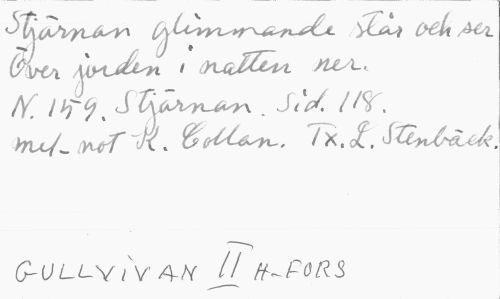 Stjärnan glimmande står och ser
över jorden i natten ner.
N. 159. Stjärnan. Sid. 118.
mel-not K. Collan. Tx. L. Stenbäck.
GULLVIVAN II H-FORS